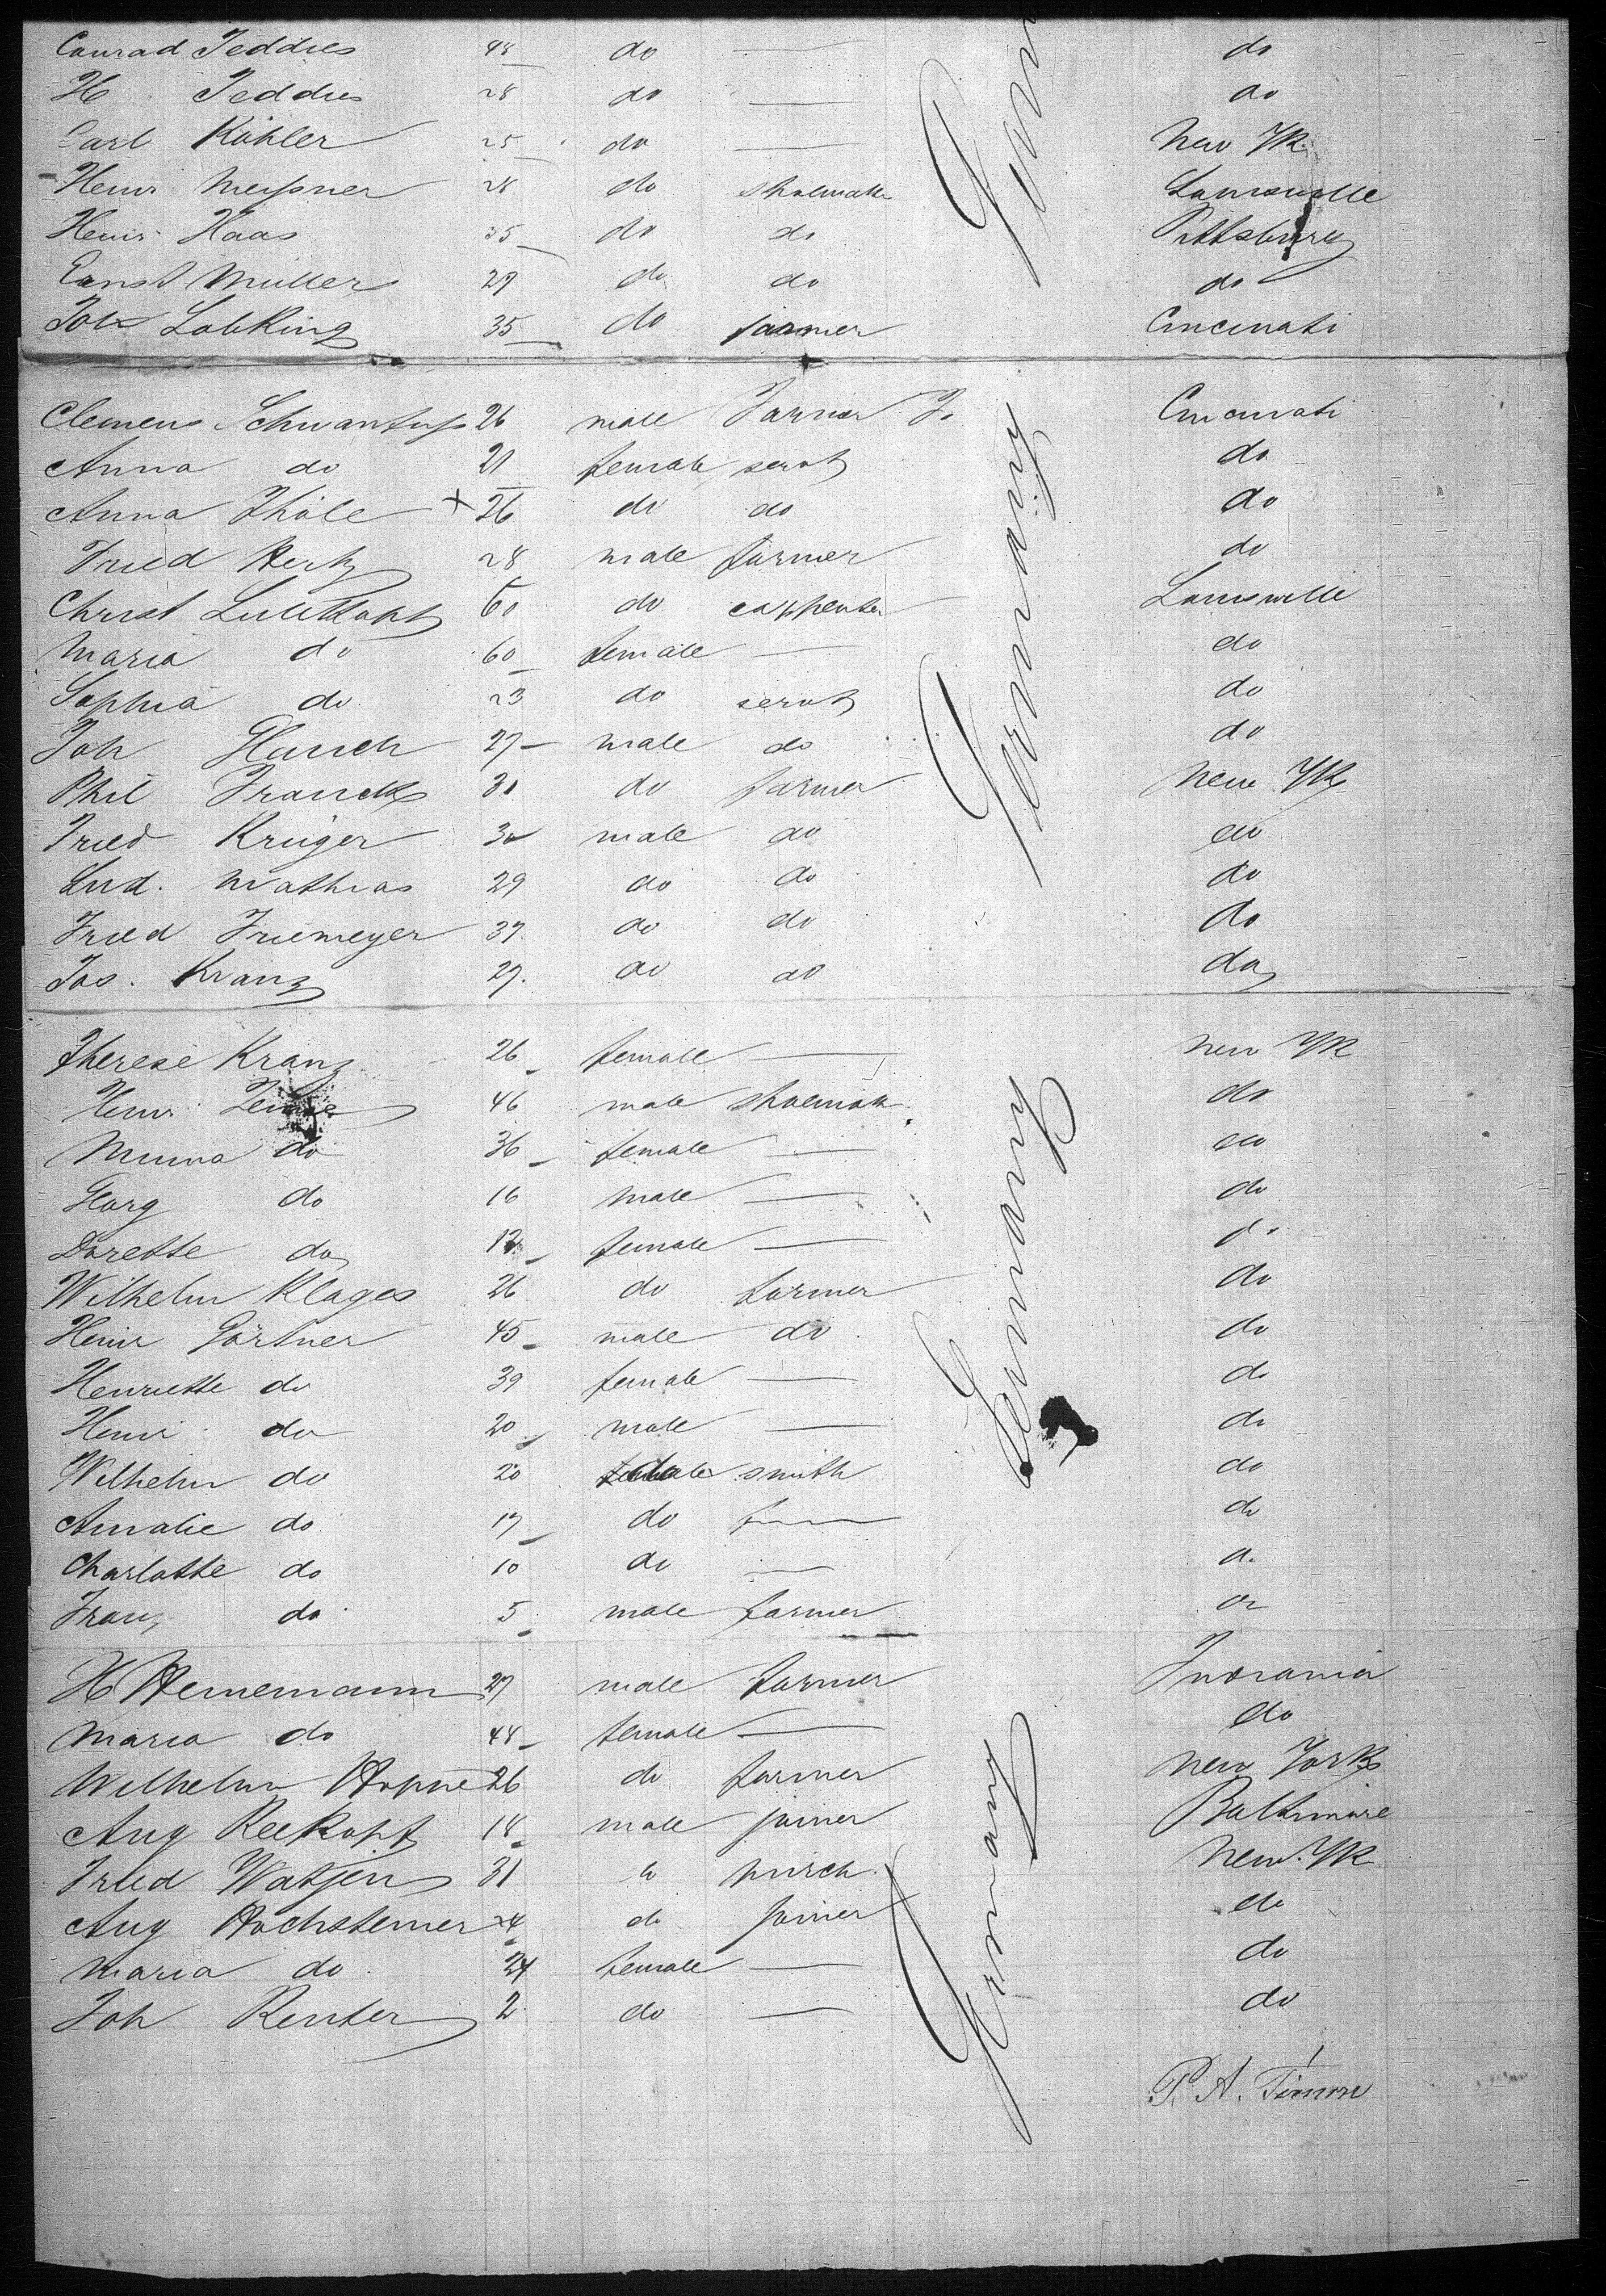 Conrad Teddies 48 do — do
H. Teddies 28 do — do
Carl Köhler 25 do — New Yk.
Henr. Meyßner 28 do shoemakr Louisville
Henr. Haas 35 do do Pittsburg
Ernst Müller 29 do do do
Joh 35 do farmer Cincinati
Germany
Clemens 26 male Farmer Cincinati
Anna do 21 female servt do
Anna Thöle + 26 do do do
Fried 28 male farmer do
Christ 60 do carpenter Louisville
Maria do 60 female — do
Sophia do 23 do servt do
Joh 27 male do do
Phil Franck 31 do farmer New Yk
Fried Krüger 30 male do do
Lud. Mathias 29 do do do
Fried Friemeyer 37. do do do
Jos. Kranz 27. do do do
Germany
Therese Kranz 26 female — New Yk
Henr. 46 male shoemak. do
Minna do 36 female — do
Georg do 16 male — do
Dorette do female — do
Wilhelm Klages 26 do farmer do
Heinr Gärtner 45 male do do
Henriette do 39 female — do
Henr. do 20 male — do
Wilhelm do 20 do smith do
Amalie do 17 do f— do
Charlotte do 10 do — do
Franz do 5 male farmer do
Germany
H Heinemann 27 male farmer Indiania
Maria do 48 female — do
Wilhelm 26 do farmer New York
Aug Reekopf 18 male joiner Baltimore
Fried Watjen 31 do New Yk
Aug Hochsteiner 24 do joiner do
Maria do 24 female — do
Joh Renter 2 do — do
Germany
P. A.